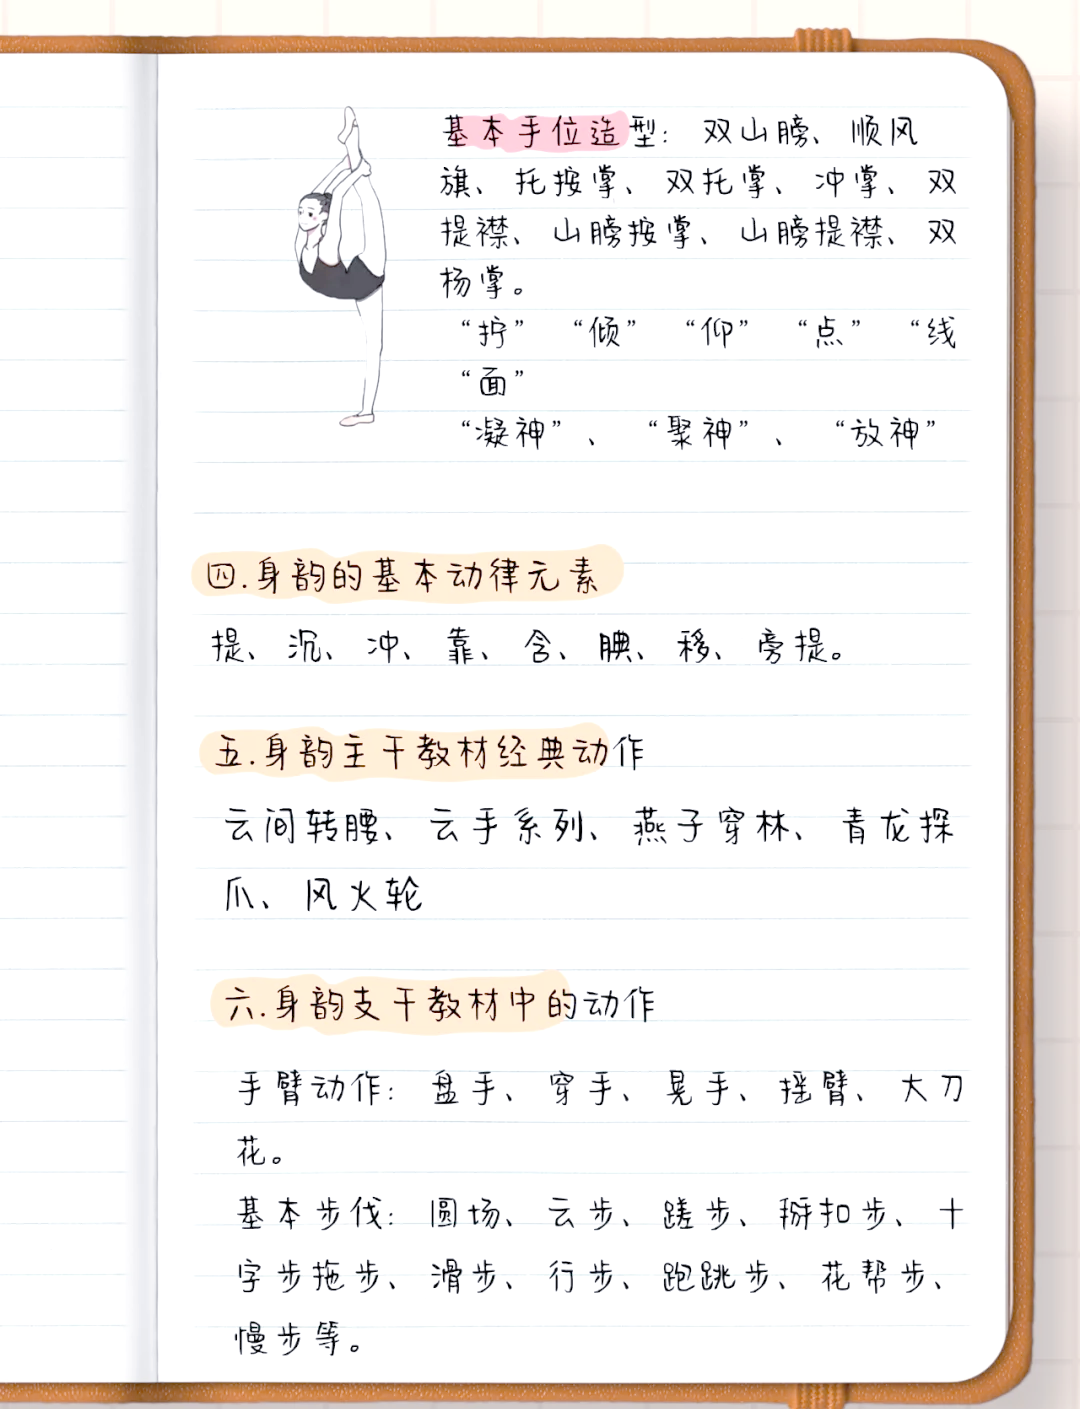 基本手位造型：双山膀、顺风
旗、托按掌、双托掌、冲掌、双
提襟、山膀按掌、山膀提襟、双
杨掌。
“拧” “倾” “仰” “点” “线
“面”
“凝神”、“聚神”、“放神”
四.身韵的基本动律元素
提、沉、冲、靠、含、腆、移、旁提。
五.身韵主干教材经典动作
云间转腰、云手系列、燕子穿林、青龙探
爪、风火轮
六.身韵支干教材中的动作
手臂动作：盘手、穿手、晃手、摇臂、大刀
花。
基本步伐：圆场、云步、蹉步、掰扣步、十
字步拖步、滑步、行步、跑跳步、花帮步、
慢步等。